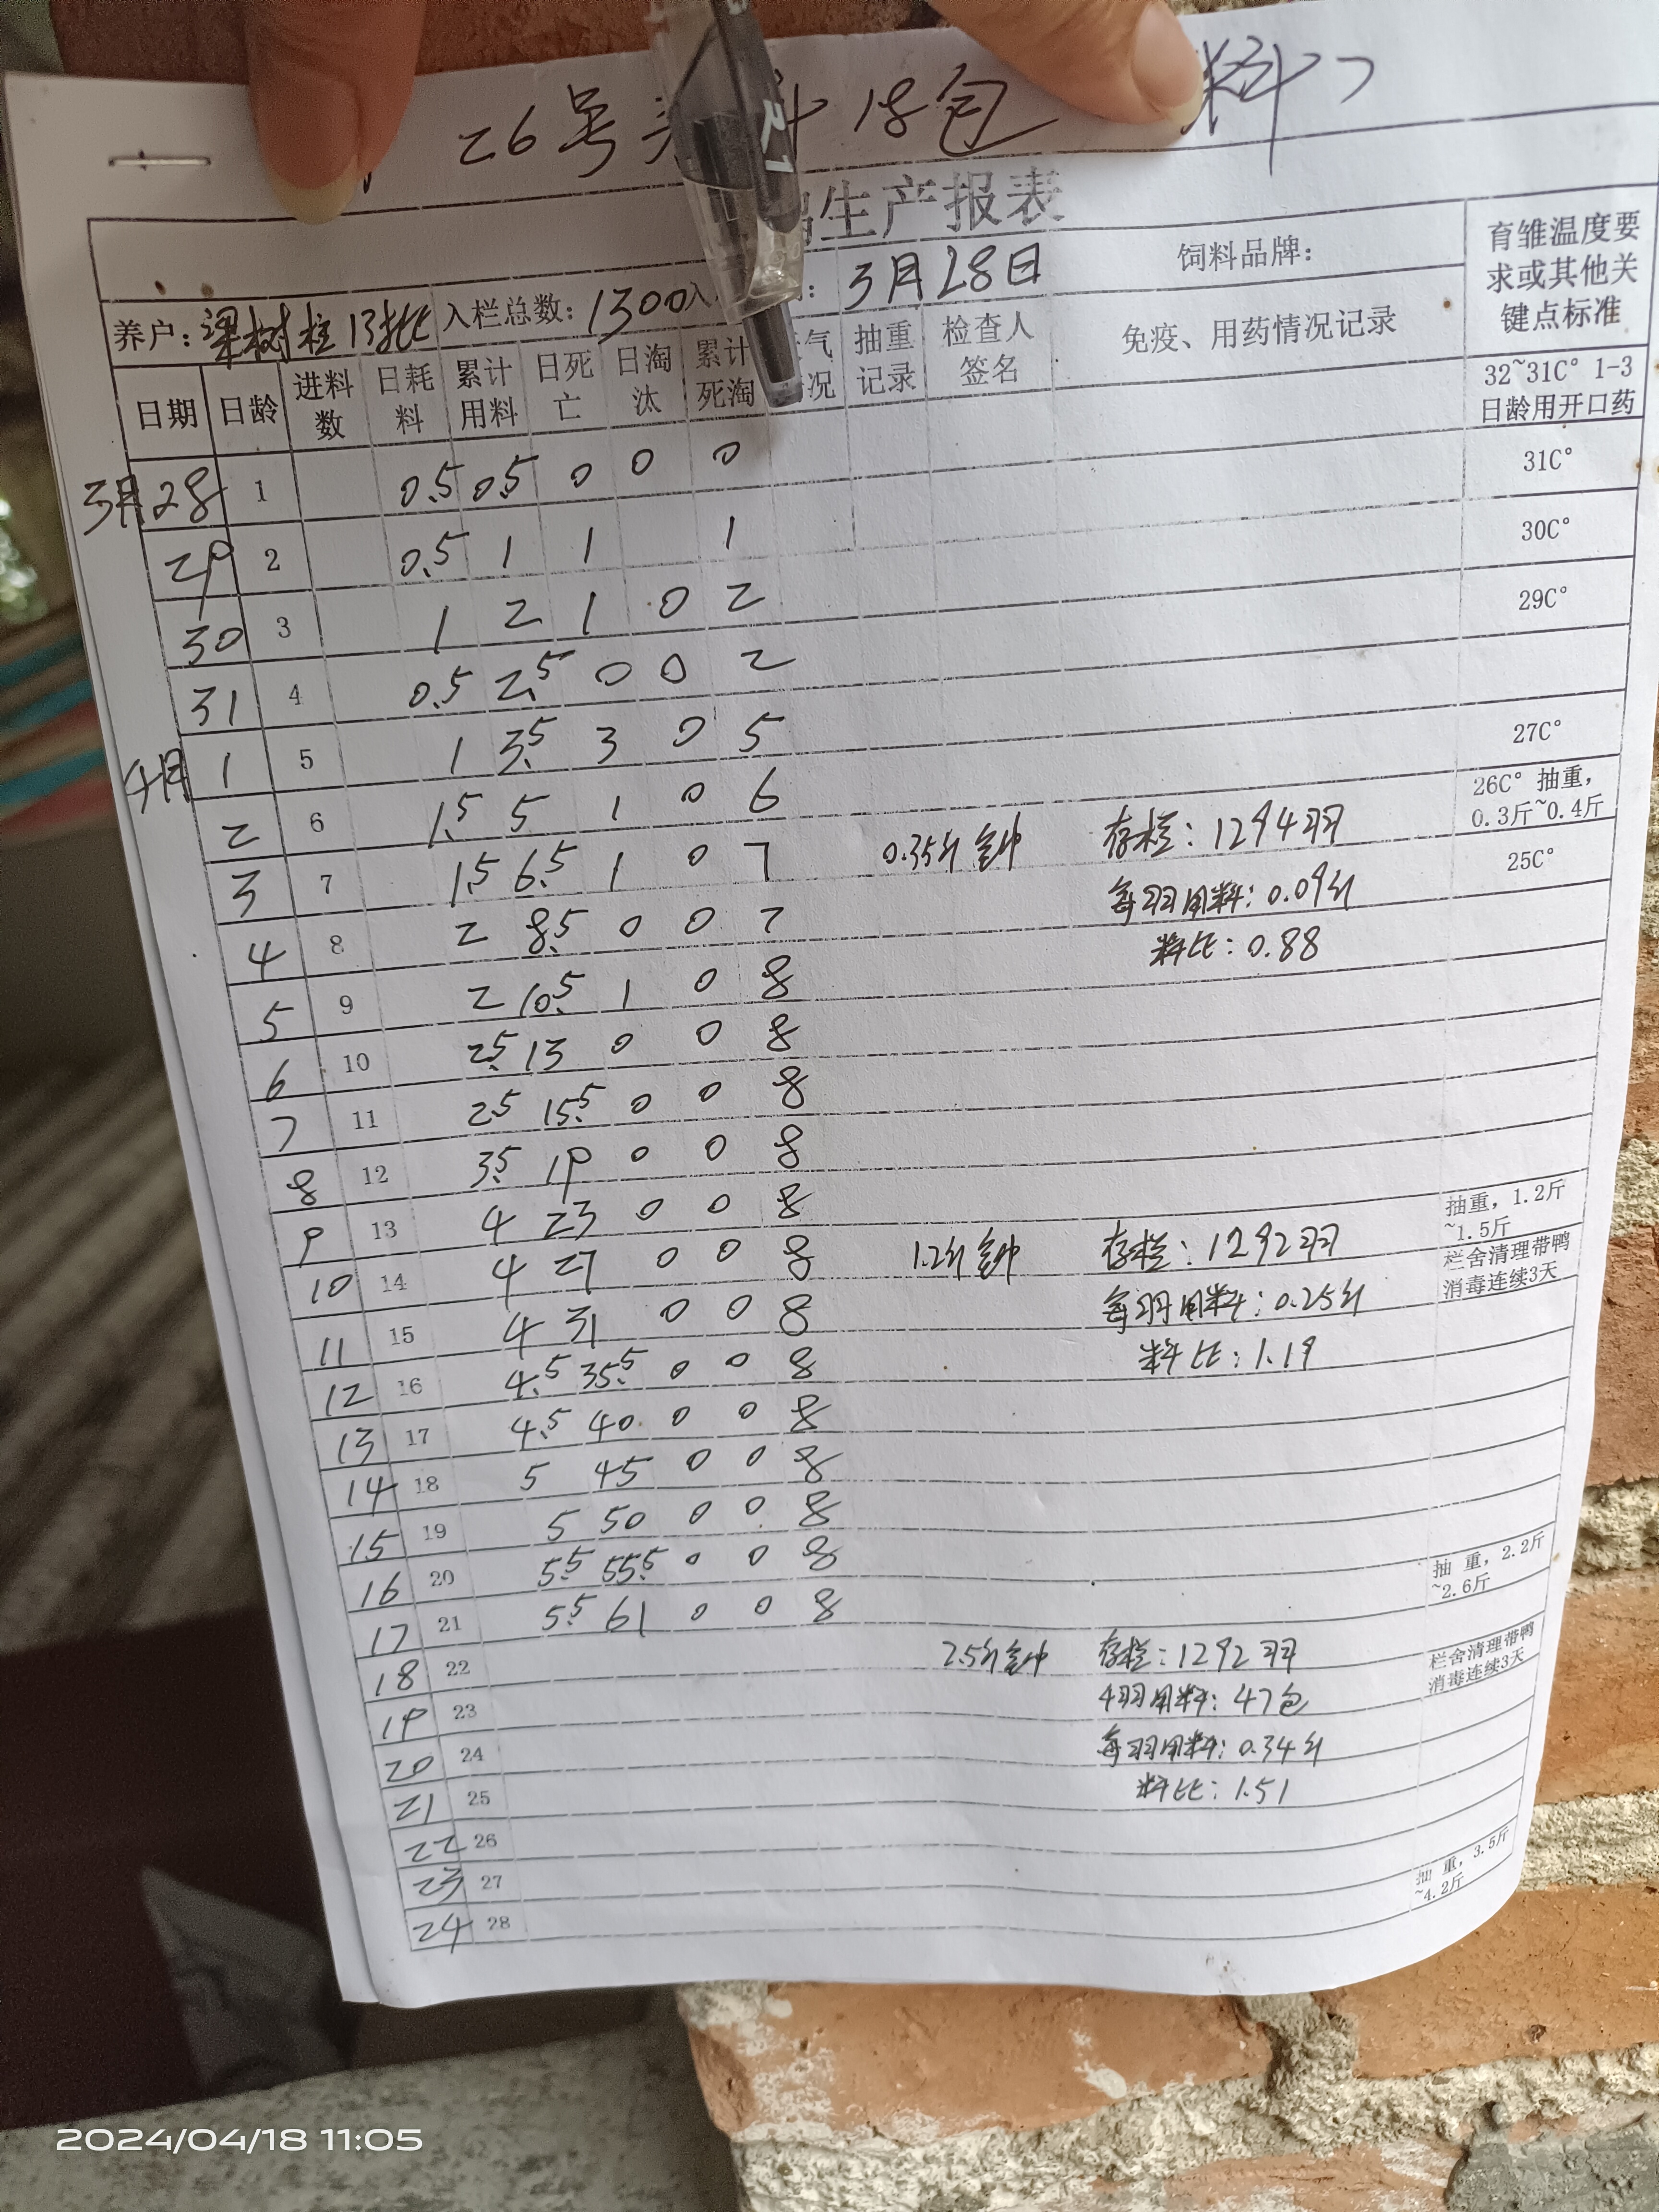 26号 18包 料
生产报表
养户:梁树柱13批 入栏总数:1300 3月28日 饲料品牌: 育雏温度要求或其他关键点标准
日期 日龄 进料数 日耗料 累计用料 日死亡 日淘汰 累计死淘 气况 抽重记录 检查人签名 免疫、用药情况记录 32~31C° 1-3日龄用开口药
3月28 1 0.5 0.5 0 0 0 31C°
29 2 0.5 1 1 1 30C°
30 3 1 2 1 0 2 29C°
31 4 0.5 2.5 0 0 2
4月1 5 1 3.5 3 0 5 27C°
2 6 1.5 5 1 0 6 26C° 抽重,0.3斤~0.4斤
3 7 1.5 6.5 1 0 7 0.35斤 存栏:1294羽 25C°
4 8 2 8.5 0 0 7 每羽用料:0.09斤
5 9 2 10.5 1 0 8 料比:0.88
6 10 2.5 13 0 0 8
7 11 2.5 15.5 0 0 8
8 12 3.5 19 0 0 8
9 13 4 23 0 0 8 抽重,1.2斤~1.5斤
10 14 4 27 0 0 8 1.2斤 存栏:1292羽 栏舍清理带鸭消毒连续3天
11 15 4 31 0 0 8 每羽用料:0.25斤
12 16 4.5 35.5 0 0 8 料比:1.19
13 17 4.5 40 0 0 8
14 18 5 45 0 0 8
15 19 5 50 0 0 8
16 20 5.5 55.5 0 0 8 抽重,2.2斤~2.6斤
17 21 5.5 61 0 0 8
18 22 2.5斤 存栏:1292羽 栏舍清理带鸭消毒连续3天
19 23 用料:47包
20 24 每羽用料:0.34斤
21 25 料比:1.51
22 26
23 27 抽重,3.5斤~4.2斤
24 28
2024/04/18 11:05